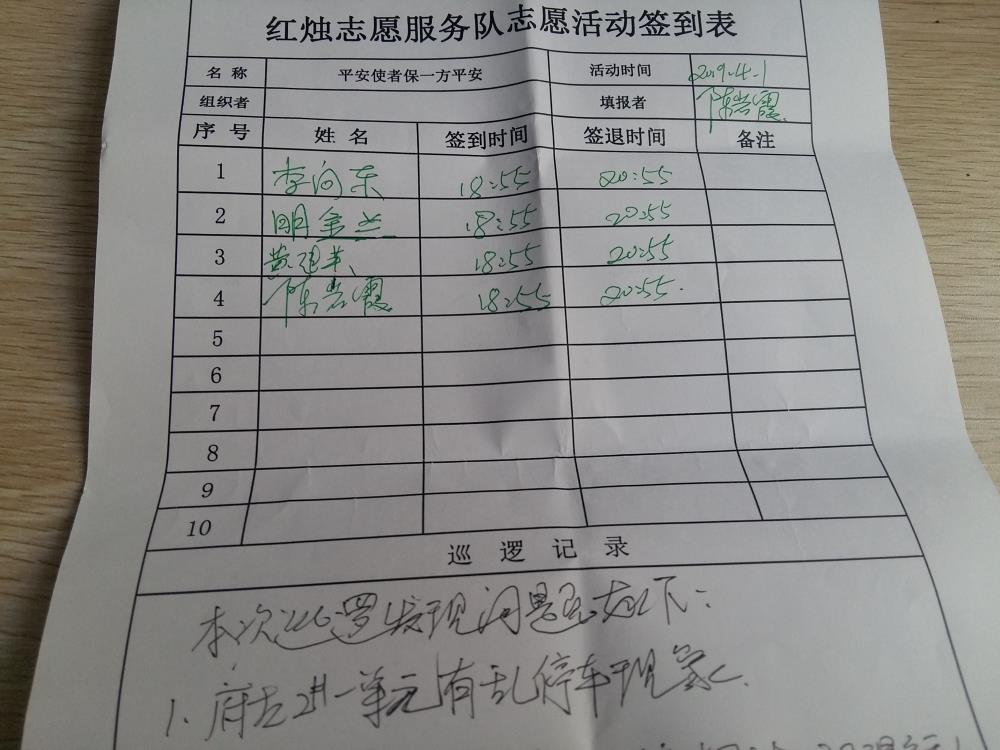 红烛志愿服务队志愿活动签到表
名 称 平安使者保一方平安 活动时间 2019.4.1
组织者 填报者 陈岩霞
序 号 姓 名 签到时间 签退时间 备注
1 李向东 18:55 20:55
2 明金兰 18:55 20:55
3 黄建英 18:55 20:55
4 陈岩霞 18:55 20:55
5
6
7
8
9
10
巡 逻 记 录
本次巡逻发现问题如下：
1、府左进一单元有乱停车现象